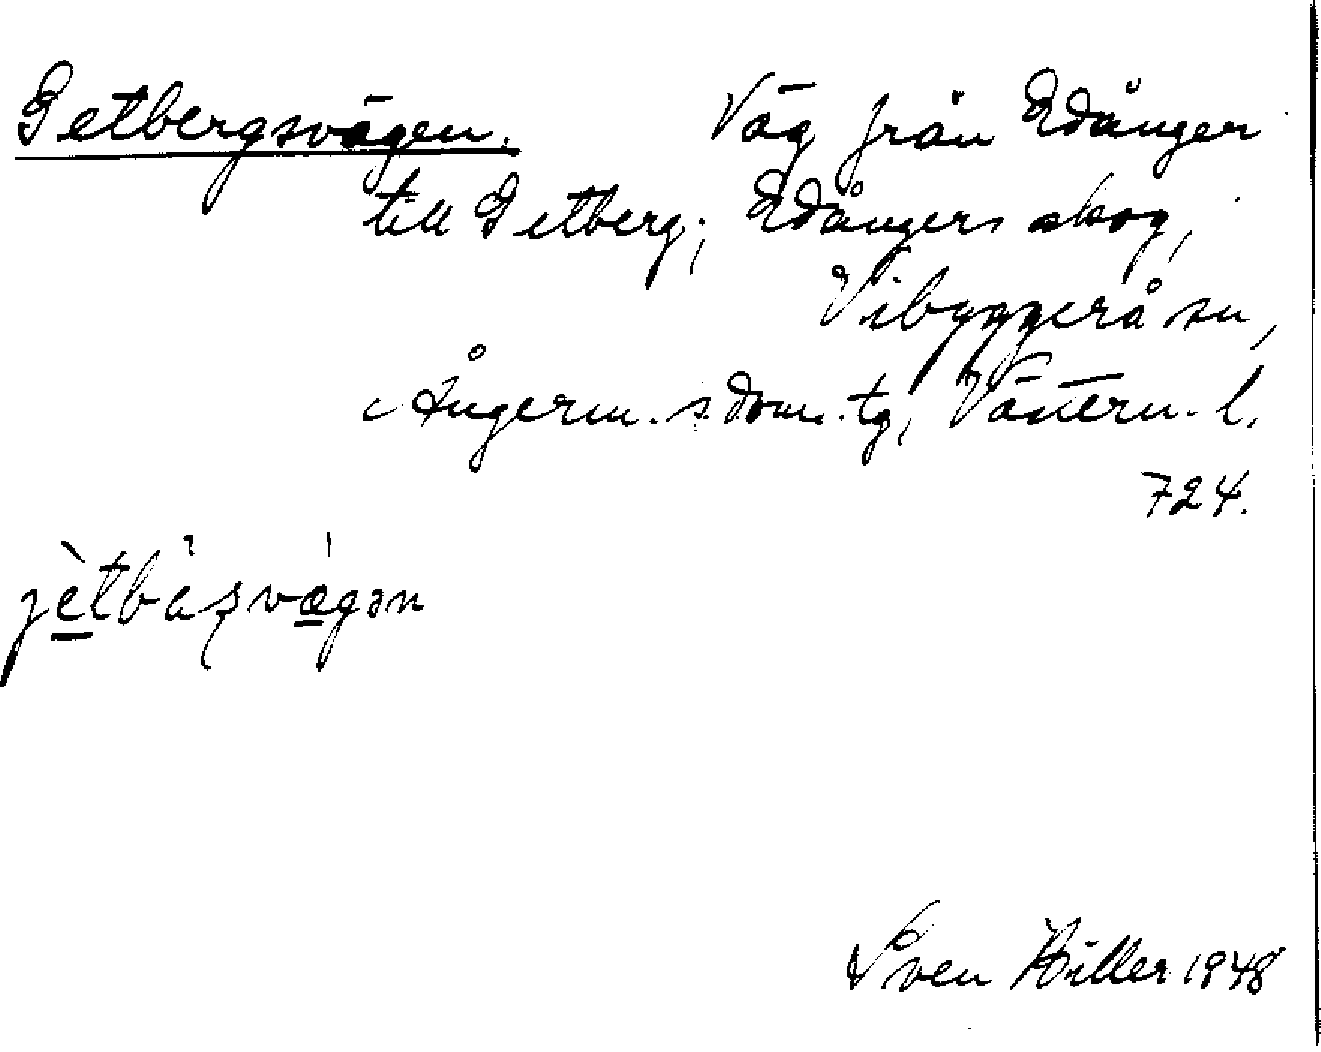 Getbergsvägen. Väg från Edånger
till Getberg; Edångers skog,
Vibyggerå sn,
Ångerm. s. dom. tg, Västern. l.
724.
jètbäʂvǽgən
Sven Hiller 1948